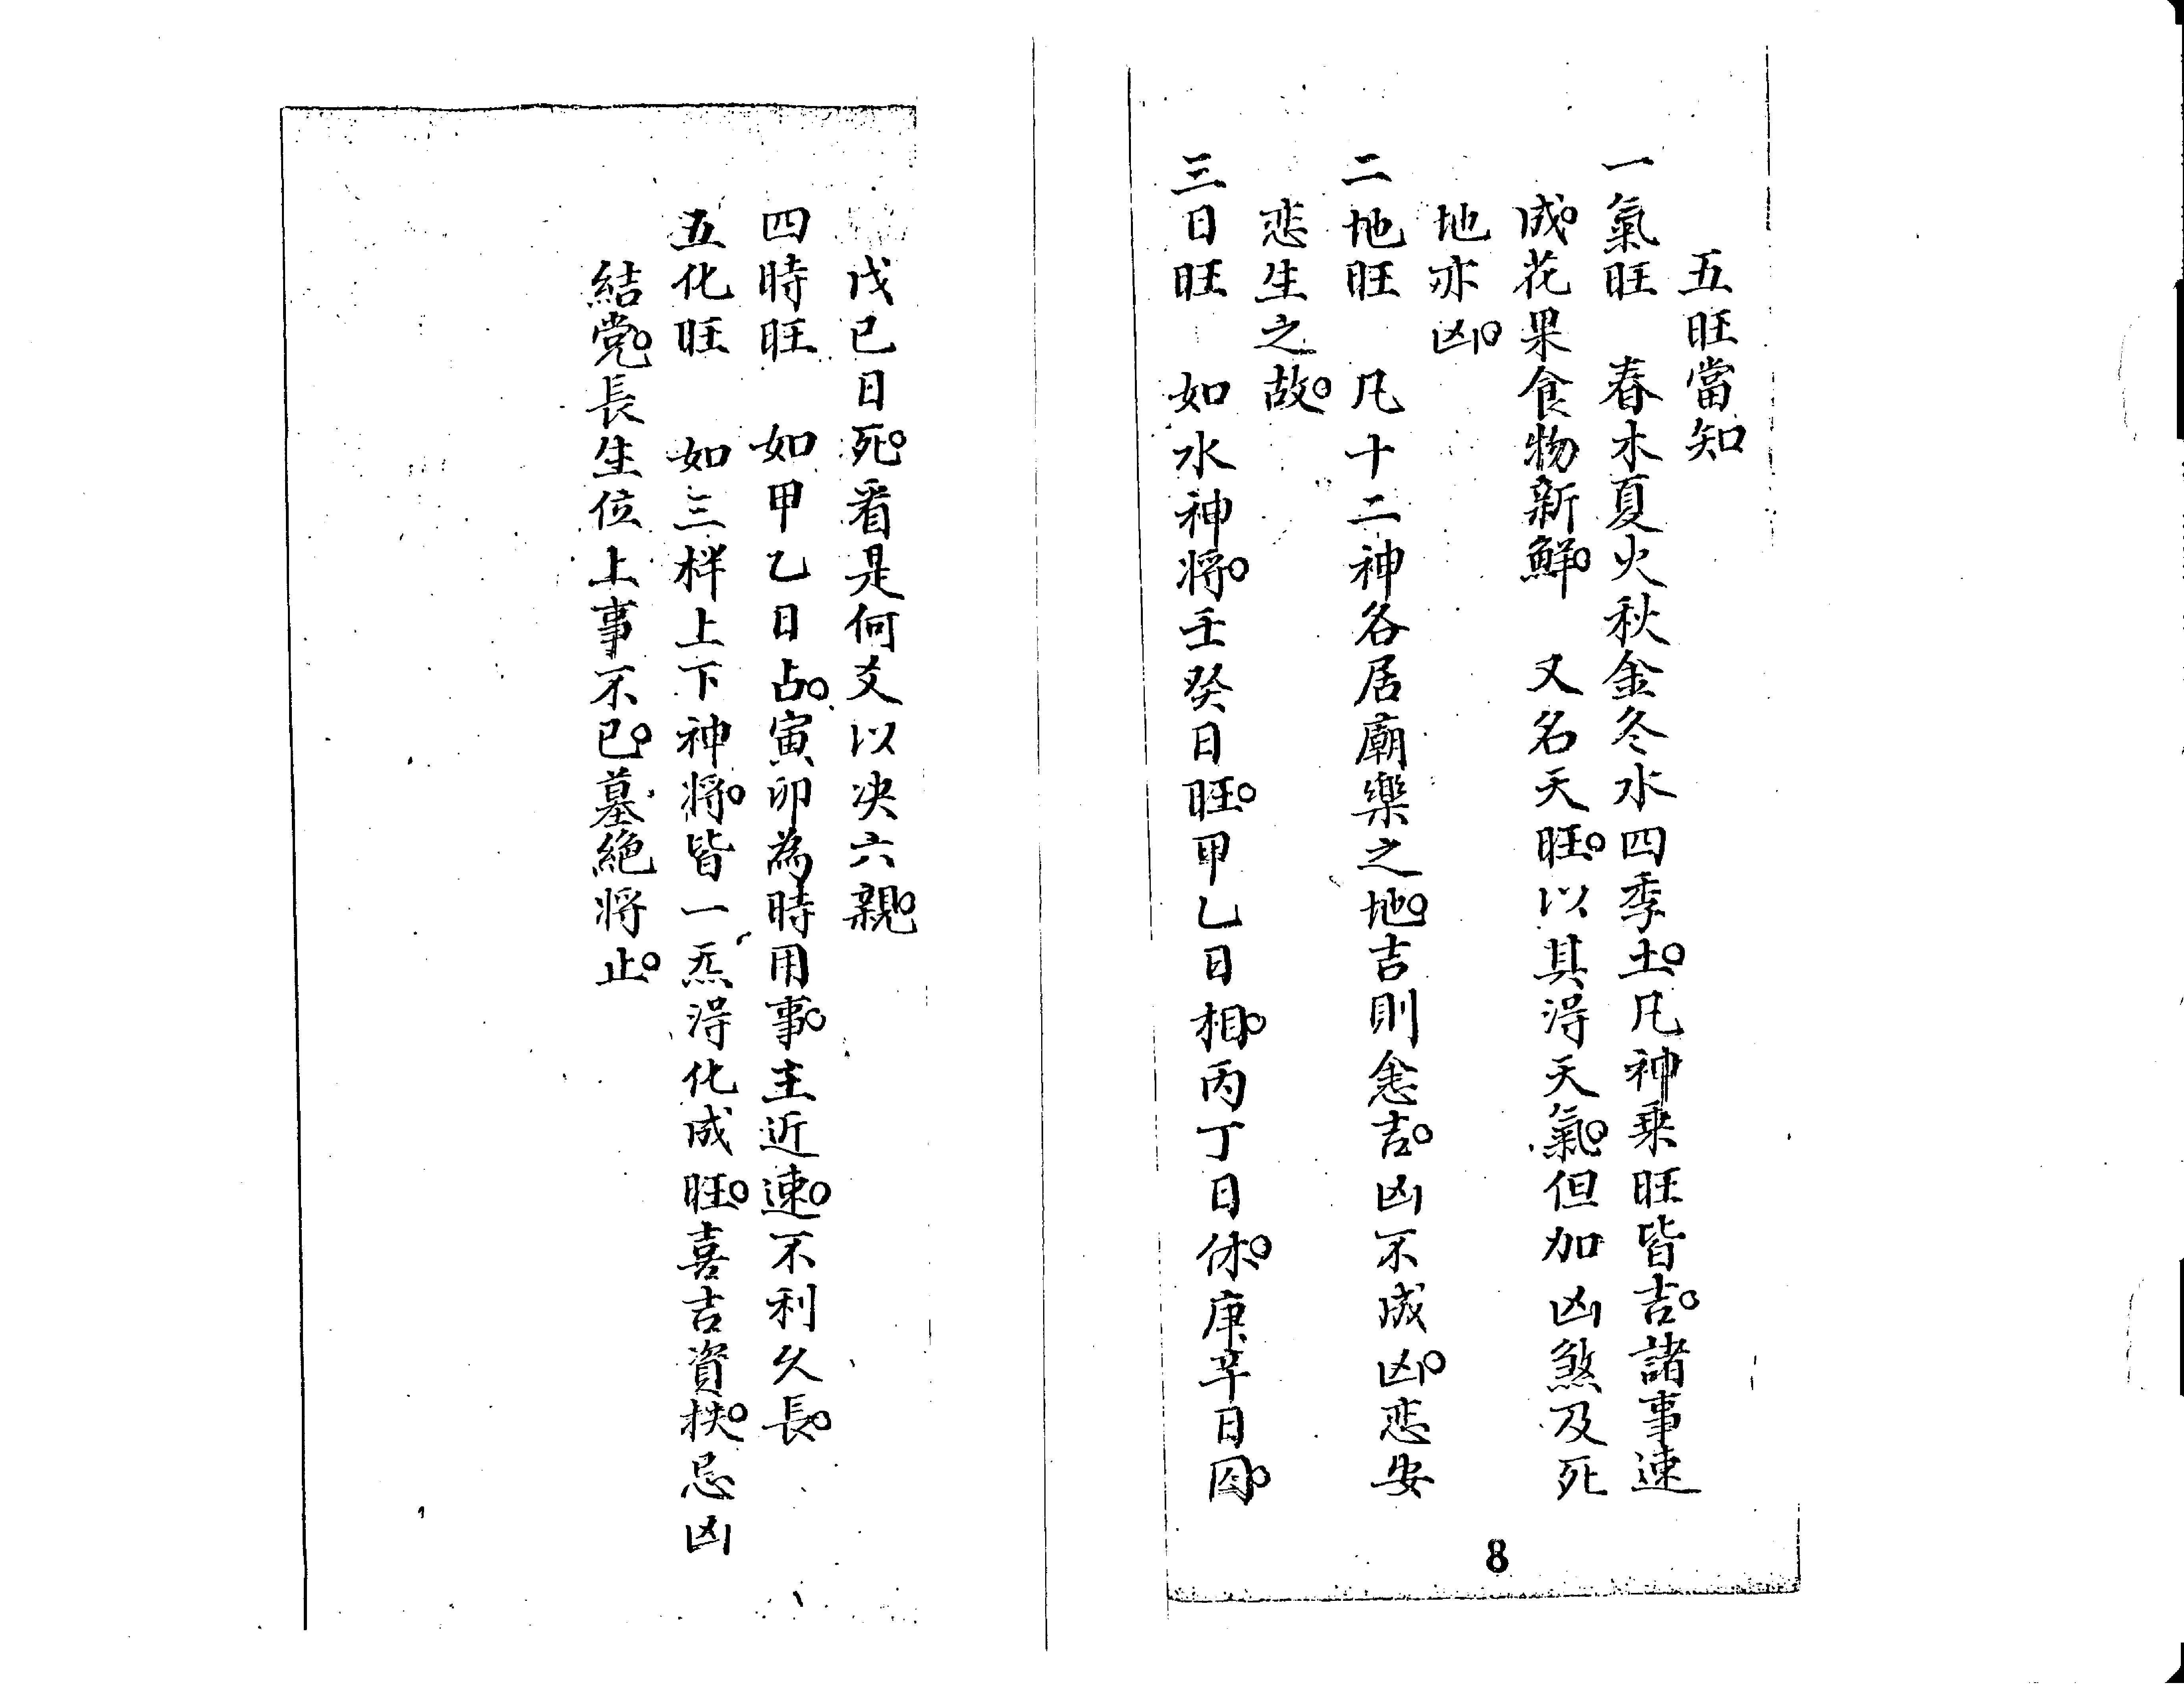 五旺當知
一氣旺　春木夏火秋金冬水四季土。凡神乗旺皆吉。諸事速
成。花果食物新鮮。　又名天旺。以其淂天氣。但加凶煞及死
地亦凶。
二地旺　凡十二神各居廟樂之地。吉則愈吉。凶不成凶。恋安
恋生之故。
三日旺　如水神将。壬癸日旺。甲乙日相。丙丁日休。庚辛日囚。
戊己日死。看是何爻以决六親。
四時旺　如甲乙日占。寅卯為時用事。主近速。不利久長。
五化旺　如三样上下神将。皆一炁淂化成旺。喜吉資扶。忌凶
結党。長生位上事不已。墓絶将止。
8